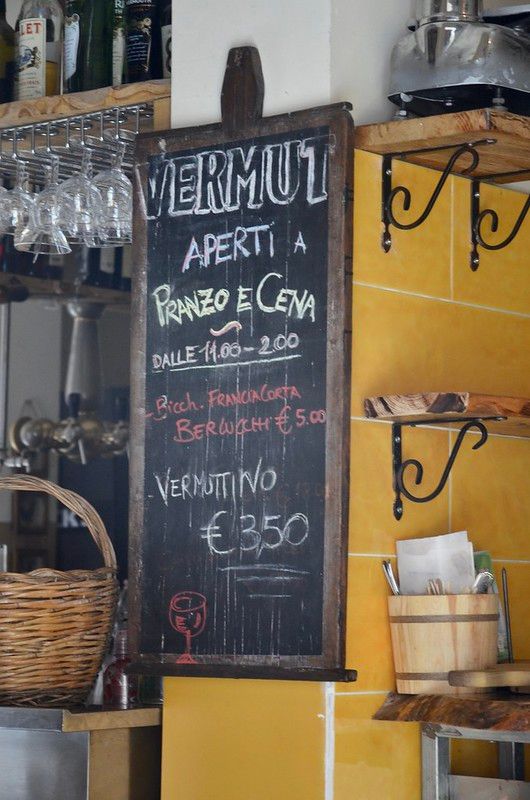 LLET
VERMUT
APERTI A
PRANZO E CENA
DALLE 11.00 - 2.00
- Bicch. FRANCIACORTA
BERLUCCHI € 5.00
- VERMUTTINO
€ 3,50